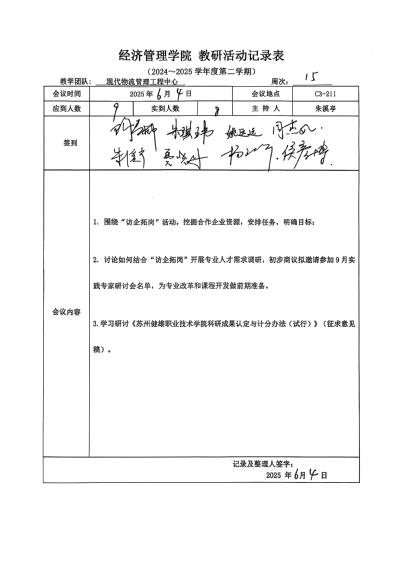 经济管理学院 教研活动记录表
（2024～2025 学年度第二学期）
教学团队： 现代物流管理工程中心 周次： 15
会议时间 2025 年 6 月 4 日 会议地点 C3-211
应到人数 9 实到人数 8 主 持 人 朱溪亭
签到
会议内容
1. 围绕“访企拓岗”活动，挖掘合作企业资源，安排任务，明确目标；
2. 讨论如何结合“访企拓岗”开展专业人才需求调研，初步商议拟邀请参加 9 月实
践专家研讨会名单，为专业改革和课程开发做前期准备。
3.学习研讨《苏州健雄职业技术学院科研成果认定与计分办法（试行）》（征求意见
稿）。
记录及整理人签字：
2025 年 6 月 4 日